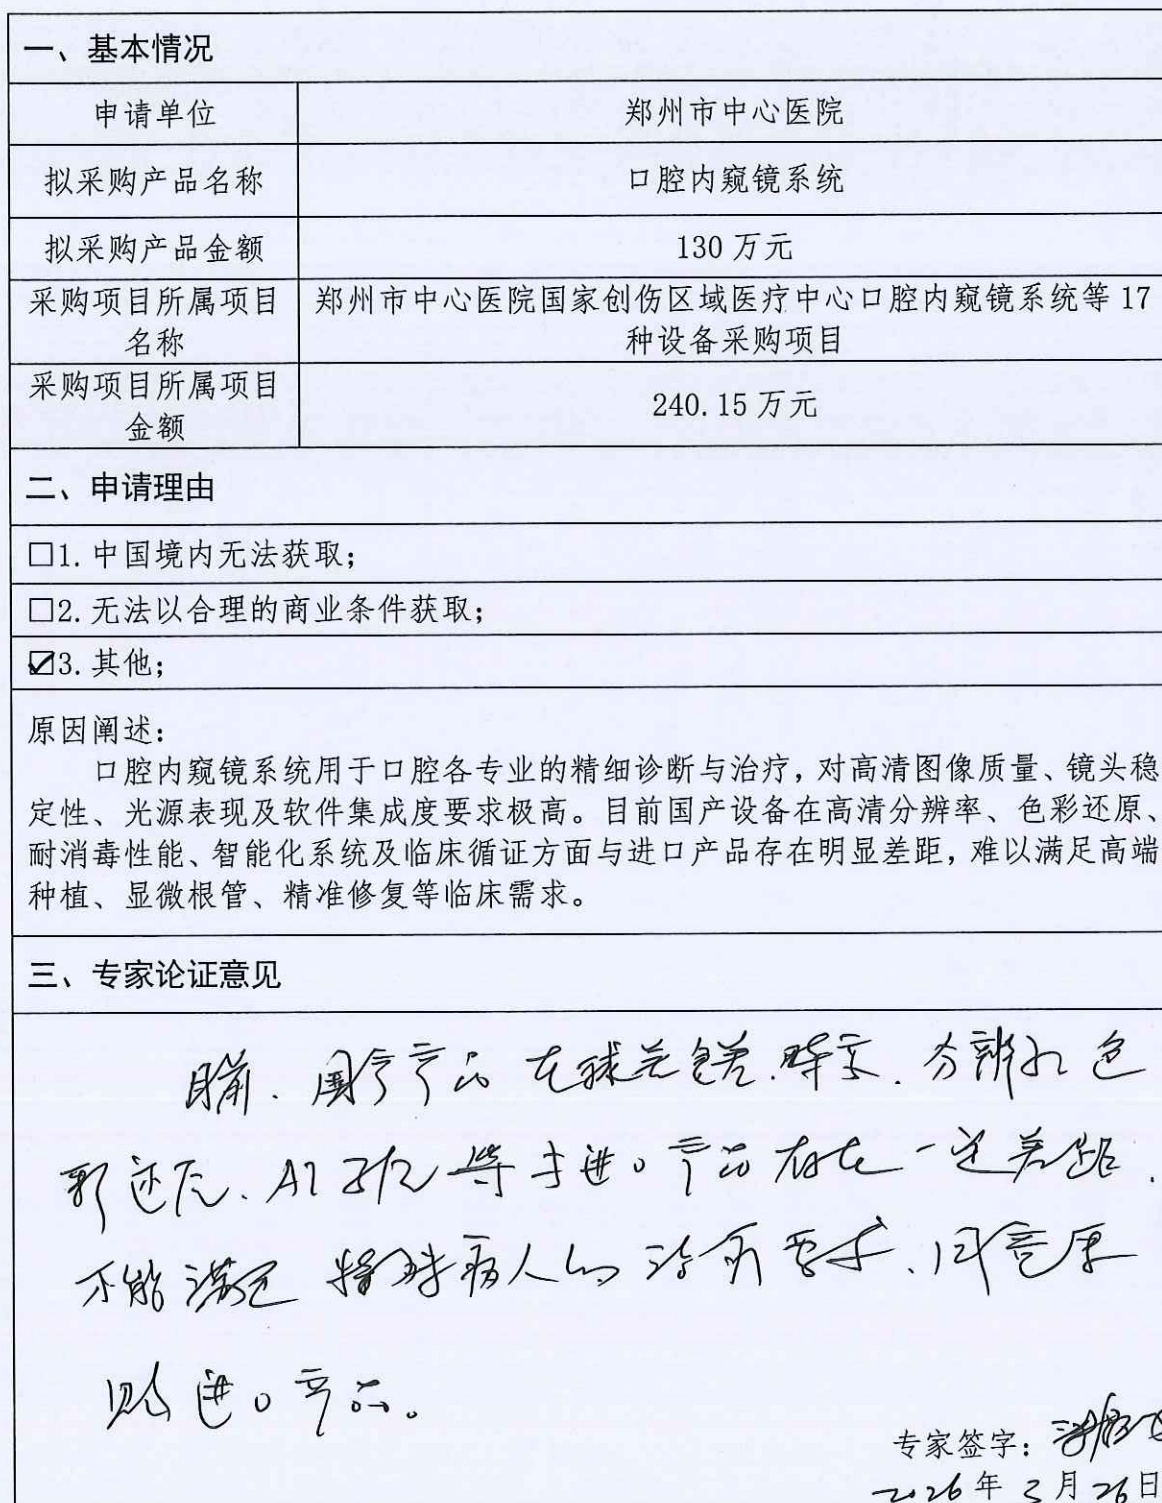 一、基本情况
申请单位
郑州市中心医院
拟采购产品名称
口腔内窥镜系统
拟采购产品金额
130 万元
采购项目所属项目
名称
郑州市中心医院国家创伤区域医疗中心口腔内窥镜系统等 17
种设备采购项目
采购项目所属项目
金额
240.15 万元
二、申请理由
□1. 中国境内无法获取；
□2. 无法以合理的商业条件获取；
☑3. 其他；
原因阐述：
口腔内窥镜系统用于口腔各专业的精细诊断与治疗，对高清图像质量、镜头稳
定性、光源表现及软件集成度要求极高。目前国产设备在高清分辨率、色彩还原、
耐消毒性能、智能化系统及临床循证方面与进口产品存在明显差距，难以满足高端
种植、显微根管、精准修复等临床需求。
三、专家论证意见
目前. 国产产品 在球差色差. 分辨 色
彩还原、AI 等与进口产品存在一定差距.
不能满足 特殊病人的治疗要求、同意采
购进口产品。
专家签字：
2026年 3月 26日